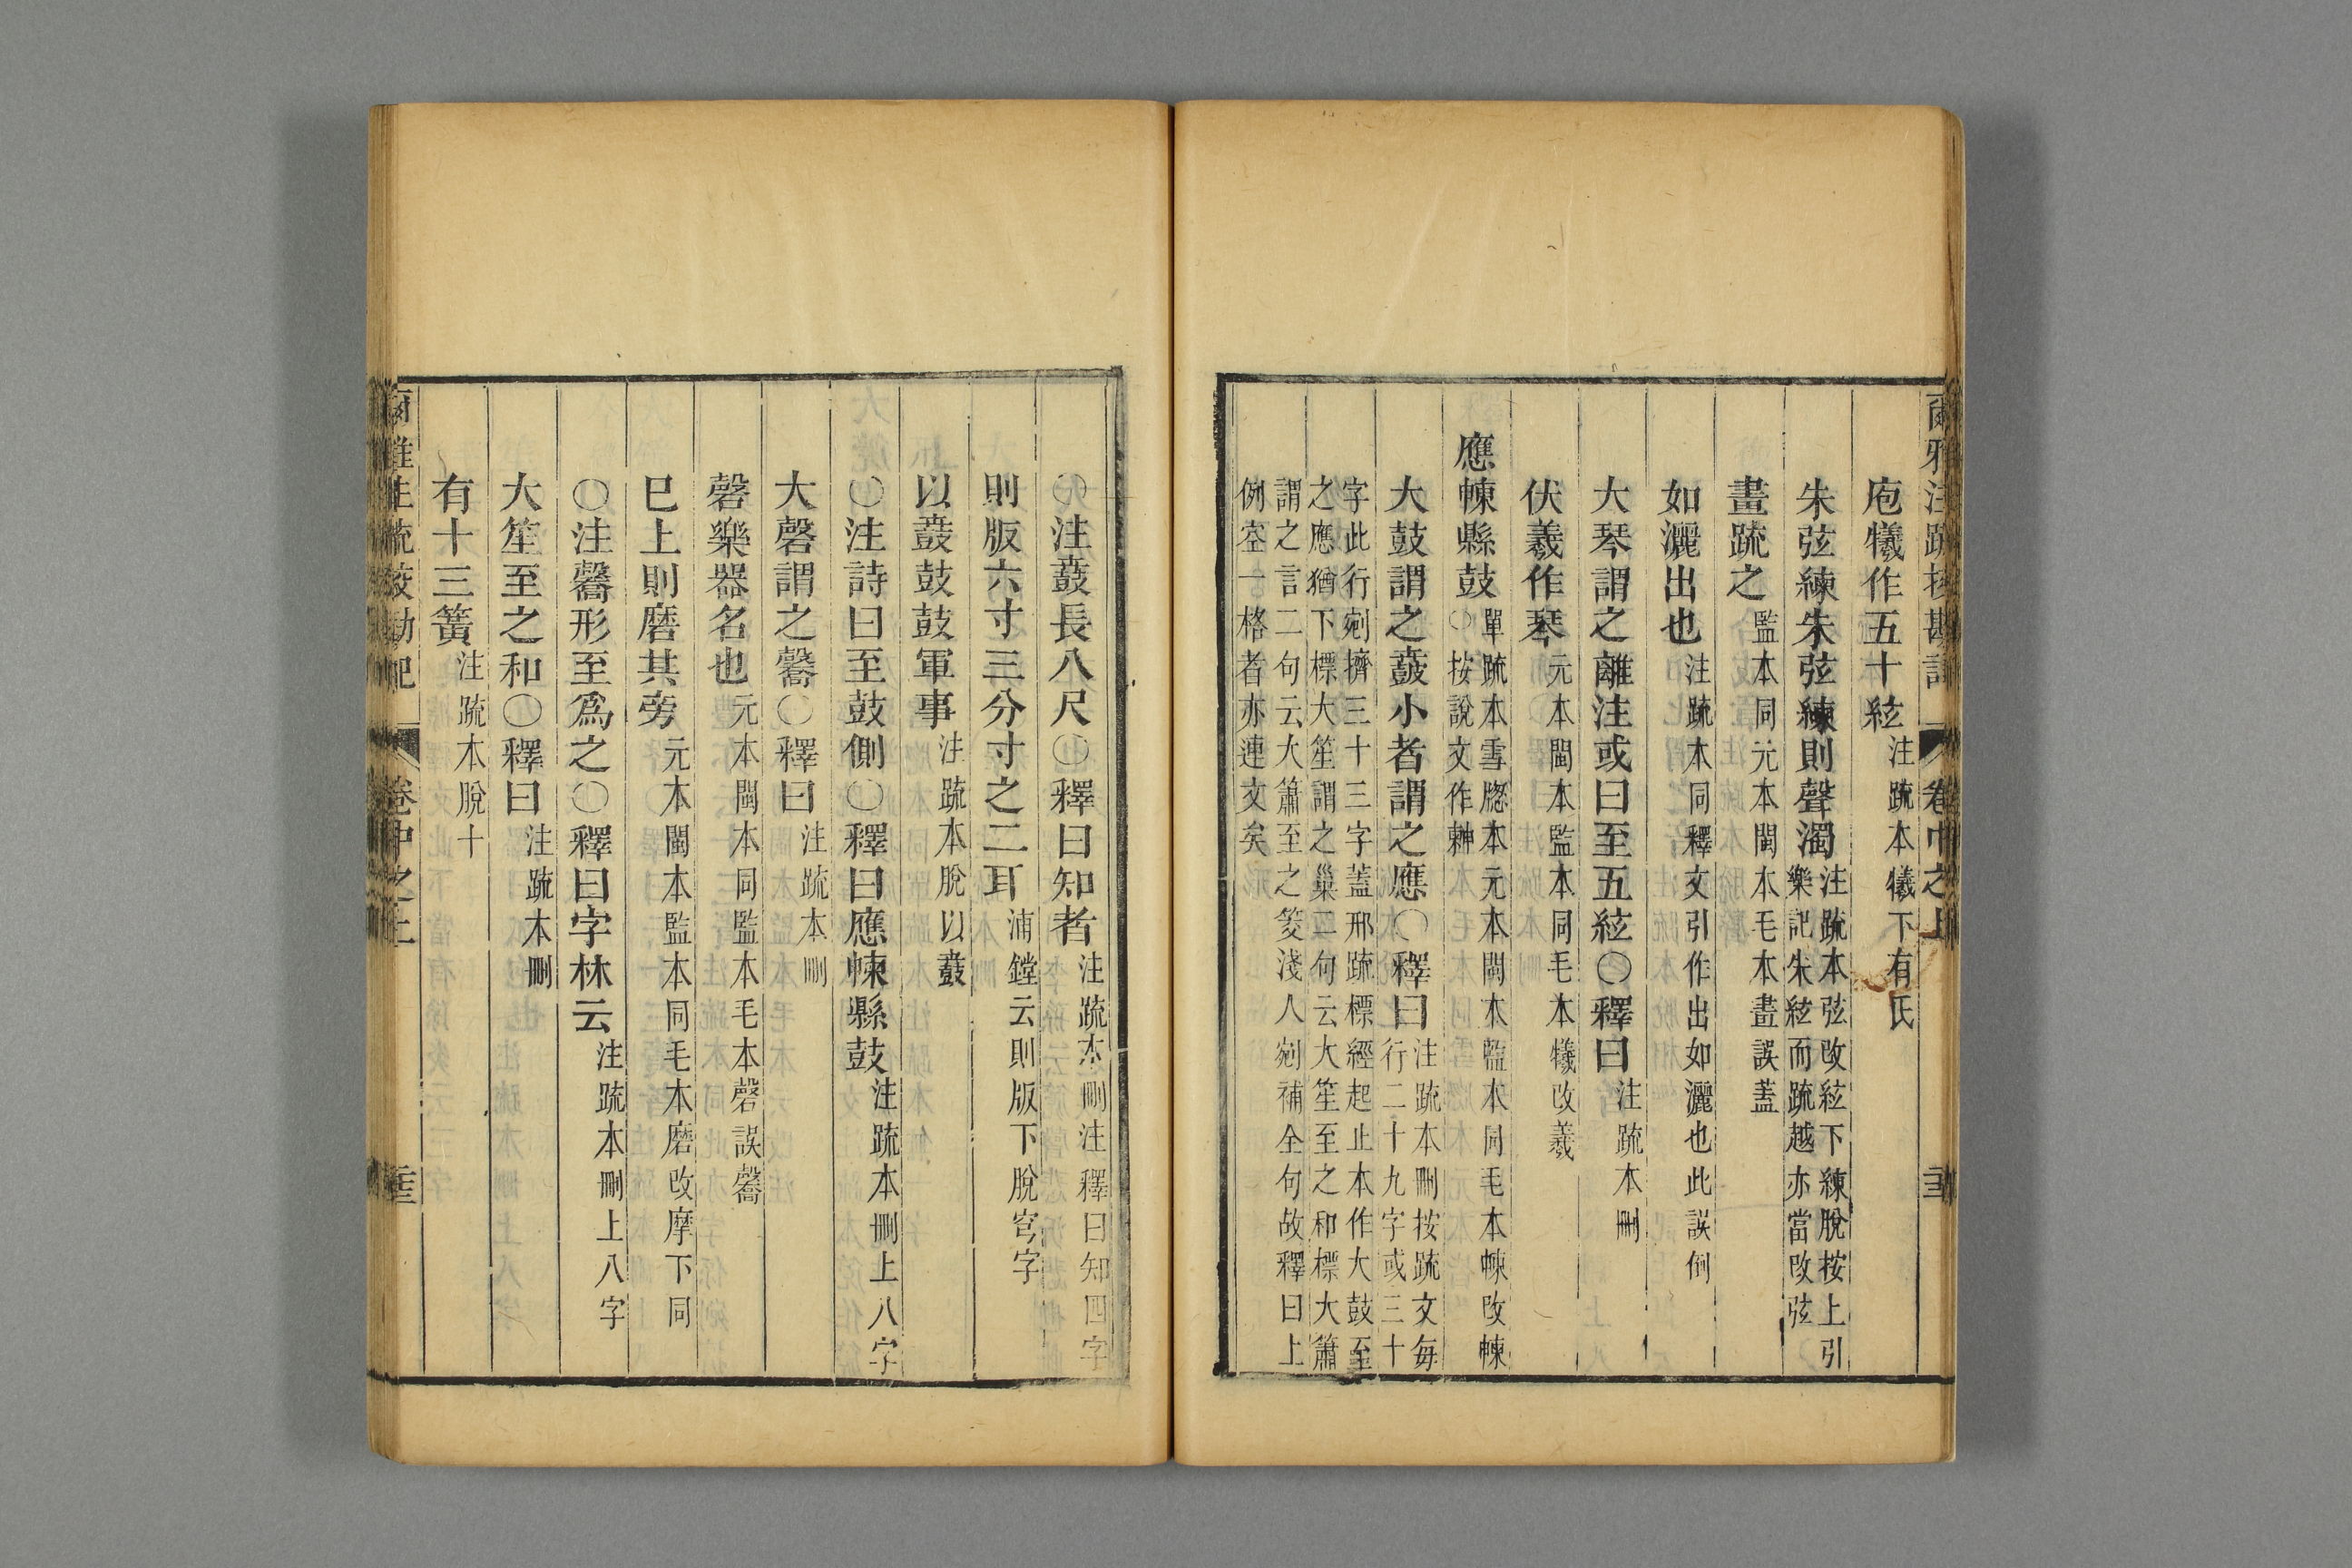 爾雅注疏挍勘記 卷中之上
庖犧作五十絃注疏本犧下有氏
朱弦練朱弦練則聲濁注疏本弦改絃下練脫按上引樂記朱絃而疏越亦當改弦
畫疏之監本同元本閩本毛本畫誤蓋
如灑出也注疏本同釋文引作出如灑也此誤倒
大琴謂之離注或曰至五絃○釋曰注疏本刪
伏羲作琴元本閩本監本同毛本犧改羲
應㯥縣鼓單疏本雪牕本元本閩本監本同毛本㯥改朄○按說文作朄
大鼓謂之鼖小者謂之應○釋曰注疏本刪按疏文每行二十九字或三十
字此行剜擠三十三字蓋邢疏標經起止本作大鼓至之應猶下標大笙謂之巢二句云大笙至之和標大簫
謂之言二句云大簫至之筊淺人剜補全句故釋曰上例空一格者亦連文矣
○注鼖長八尺○釋曰知者注疏本刪注釋曰知四字
則版六寸三分寸之二耳浦鏜云則版下脫穹字
以鼖鼓鼓軍事注疏本脫以鼖
○注詩曰至鼓側○釋曰應㯥縣鼓注疏本刪上八字
大磬謂之毊○釋曰注疏本刪
磬樂器名也元本閩本同監本毛本磬誤毊
已上則磨其旁元本閩本監本同毛本磨改摩下同
○注毊形至爲之○釋曰字林云注疏本刪上八字
大笙至之和○釋曰注疏本刪
有十三簧注疏本脫十
爾雅注疏挍勘記 卷中之上